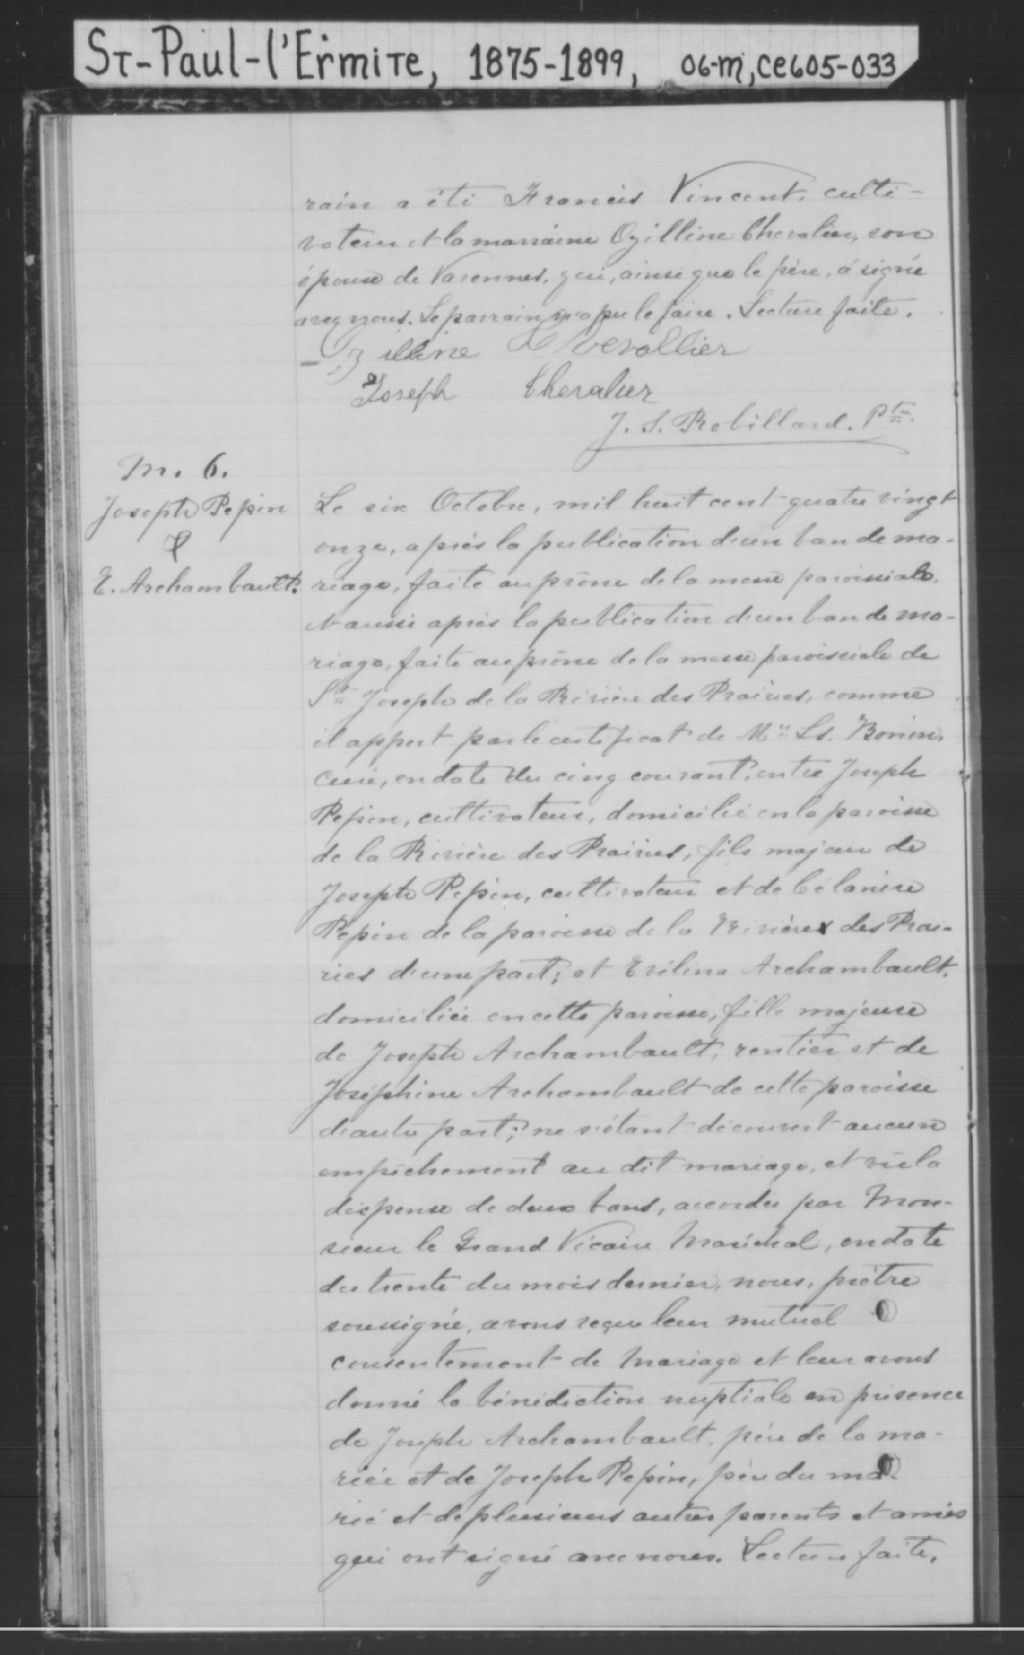 St-Paul-l'Ermite, 1875-1899, 06-m, ce605-033
rain a été Francis Vincent, culti-
vateur et la marraine Ozilline Chevalier, son
épouse de Varennes, qui, ainsi que le père, a signé
avec nous. Le parrain n'a pu le faire. Lecture faite.
Ozilline Chevallier
Joseph Chevalier
J. S. Robillard. Ptre.
M. 6.
Joseph Pepin
&
E. Archambault.
Le six Octobre, mil huit cent quatre vingt
onze, après la publication d'un ban de ma-
riage, faite au prône de la messe paroissiale,
et aussi après la publication d'un ban de ma-
riage, faite au prône de la messe paroissiale de
St Joseph de la Rivière des Prairies, comme
il appert par le certificat de Mr. Ls. Bonin,
curé, en date du cinq courant, entre Joseph
Pepin, cultivateur, domicilié en la paroisse
de la Rivière des Prairies, fils majeur de
Joseph Pepin, cultivateur et de Célanire
Pepin de la paroisse de la Rivière des Prai-
ries d'une part; et Evélina Archambault,
domiciliée en cette paroisse, fille majeure
de Joseph Archambault, rentier et de
Joséphine Archambault de cette paroisse
d'autre part; ne s'étant découvert aucun
empêchement au dit mariage, et vu la
dispense de deux bans, accordée par Mon-
sieur le Grand Vicaire Maréchal, en date
du trente du mois dernier, nous, prêtre
soussigné, avons reçu leur mutuel
consentement de mariage et leur avons
donné la bénédiction nuptiale en présence
de Joseph Archambault, père de la ma-
riée et de Joseph Pepin, père du ma-
rié et de plusieurs autres parents et amies
qui ont signé avec nous. Lecture faite.